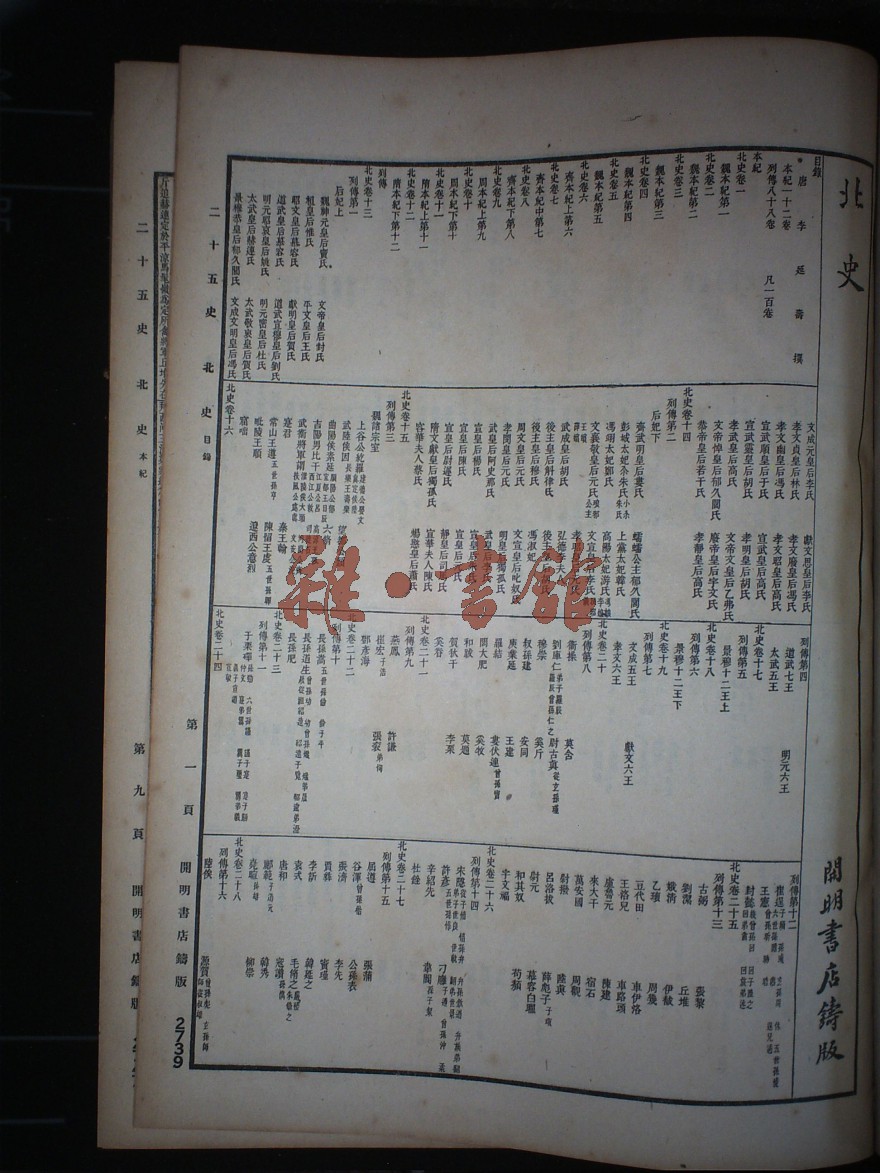 北史
開明書店鑄版
目錄
唐 李 延 壽 撰
本紀一十二卷
列傳八十八卷 凡一百卷
本紀
北史卷一
魏本紀第一
北史卷二
魏本紀第二
北史卷三
魏本紀第三
北史卷四
魏本紀第四
北史卷五
魏本紀第五
北史卷六
齊本紀上第六
北史卷七
齊本紀中第七
北史卷八
齊本紀下第八
北史卷九
周本紀上第九
北史卷十
周本紀下第十
北史卷十一
隋本紀上第十一
北史卷十二
隋本紀下第十二
列傳
北史卷十三
列傳第一
后妃上
魏神元皇后竇氏 文帝皇后封氏
桓皇后惟氏 平文皇后王氏
昭文皇后慕容氏 獻明皇后賀氏
道武皇后慕容氏 道武宣穆皇后劉氏
明元昭哀皇后姚氏 明元密皇后杜氏
太武皇后赫連氏 太武敬哀皇后賀氏
景穆恭皇后郁久閭氏 文成文明皇后馮氏
文成元皇后李氏 獻文思皇后李氏
孝文貞皇后林氏 孝文廢皇后馮氏
孝文幽皇后馮氏 孝文昭皇后高氏
宣武順皇后于氏 宣武皇后高氏
宣武靈皇后胡氏 孝明皇后胡氏
孝武皇后高氏 文帝文皇后乙弗氏
文帝悼皇后郁久閭氏 廢帝皇后宇文氏
恭帝皇后若干氏 孝靜皇后高氏
北史卷十四
列傳第二
后妃下
齊武明皇后婁氏 蠕蠕公主郁久閭氏
彭城太妃尒朱氏 上黨太妃韓氏
馮翊太妃鄭氏 高陽太妃游氏
文襄敬皇后元氏 文宣皇后李氏
武成皇后胡氏 弘德李夫人
後主皇后斛律氏
後主皇后穆氏 馮淑妃
周文皇后元氏 文宣皇后叱奴氏
孝閔皇后元氏 明皇后獨孤氏
武皇后阿史那氏 武皇后李氏
宣皇后楊氏 宣皇后朱氏
宣皇后陳氏 宣皇后元氏
宣皇后尉遲氏 靜皇后司馬氏
隋文獻皇后獨孤氏 宣華夫人陳氏
容華夫人蔡氏 煬愍皇后蕭氏
北史卷十五
列傳第三
魏諸宗室
上谷公紇羅
武陵侯因
曲陽侯素延
吉陽男比干
武衛將軍謂
寔君 秦王翰
常山王遵 陳留王虔
毗陵王順 遼西公意烈
窟咄
北史卷十六
列傳第四
道武七王 明元六王
太武五王
北史卷十七
列傳第五
景穆十二王上
北史卷十八
列傳第六
景穆十二王下
北史卷十九
列傳第七
文成五王 獻文六王
孝文六王
北史卷二十
列傳第八
衞操 莫含
劉庫仁 尉古真
穆崇 奚斤
叔孫建 安同
庾業延 王建
羅結 婁伏連
閭大肥 奚牧
和跋 莫題
賀狄干 李栗
奚眷
北史卷二十一
列傳第九
燕鳳 許謙
崔宏 張袞
鄧彥海
北史卷二十二
列傳第十
長孫嵩
長孫道生
長孫肥
北史卷二十三
列傳第十一
于栗磾
北史卷二十四
列傳第十二
崔逞
王憲
封懿
北史卷二十五
列傳第十三
古弼 張黎
劉潔 丘堆
娥清 伊馛
乙瓌 周幾
豆代田 車伊洛
王洛兒 車路頭
盧魯元 陳建
來大干 宿石
萬安國 周觀
尉撥 陸真
呂洛拔 薛彪子
尉元 慕容白曜
和其奴 苟頹
宇文福
北史卷二十六
列傳第十四
宋隱
許彥 刁雍
辛紹先 韋閬
杜銓
北史卷二十七
列傳第十五
屈遵 張蒲
谷渾 公孫表
張濟 李先
賈彝 竇瑾
李訢 韓延之
袁式 毛脩之
唐和 寇讚
酈範 韓秀
堯暄 柳崇
北史卷二十八
列傳第十六
陸俟 源賀
二十五史 北史 目錄 第一頁 開明書店鑄版 2739
二十五史 北史 本紀 第九頁 開明書店鑄版
雜·書館